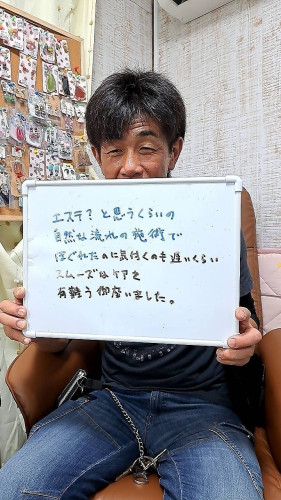 エステ？と思うくらいの
自然な流れの施術で
ほぐれたのに気付くのも遅いくらい
スムーズなケアを
有難う御座いました。